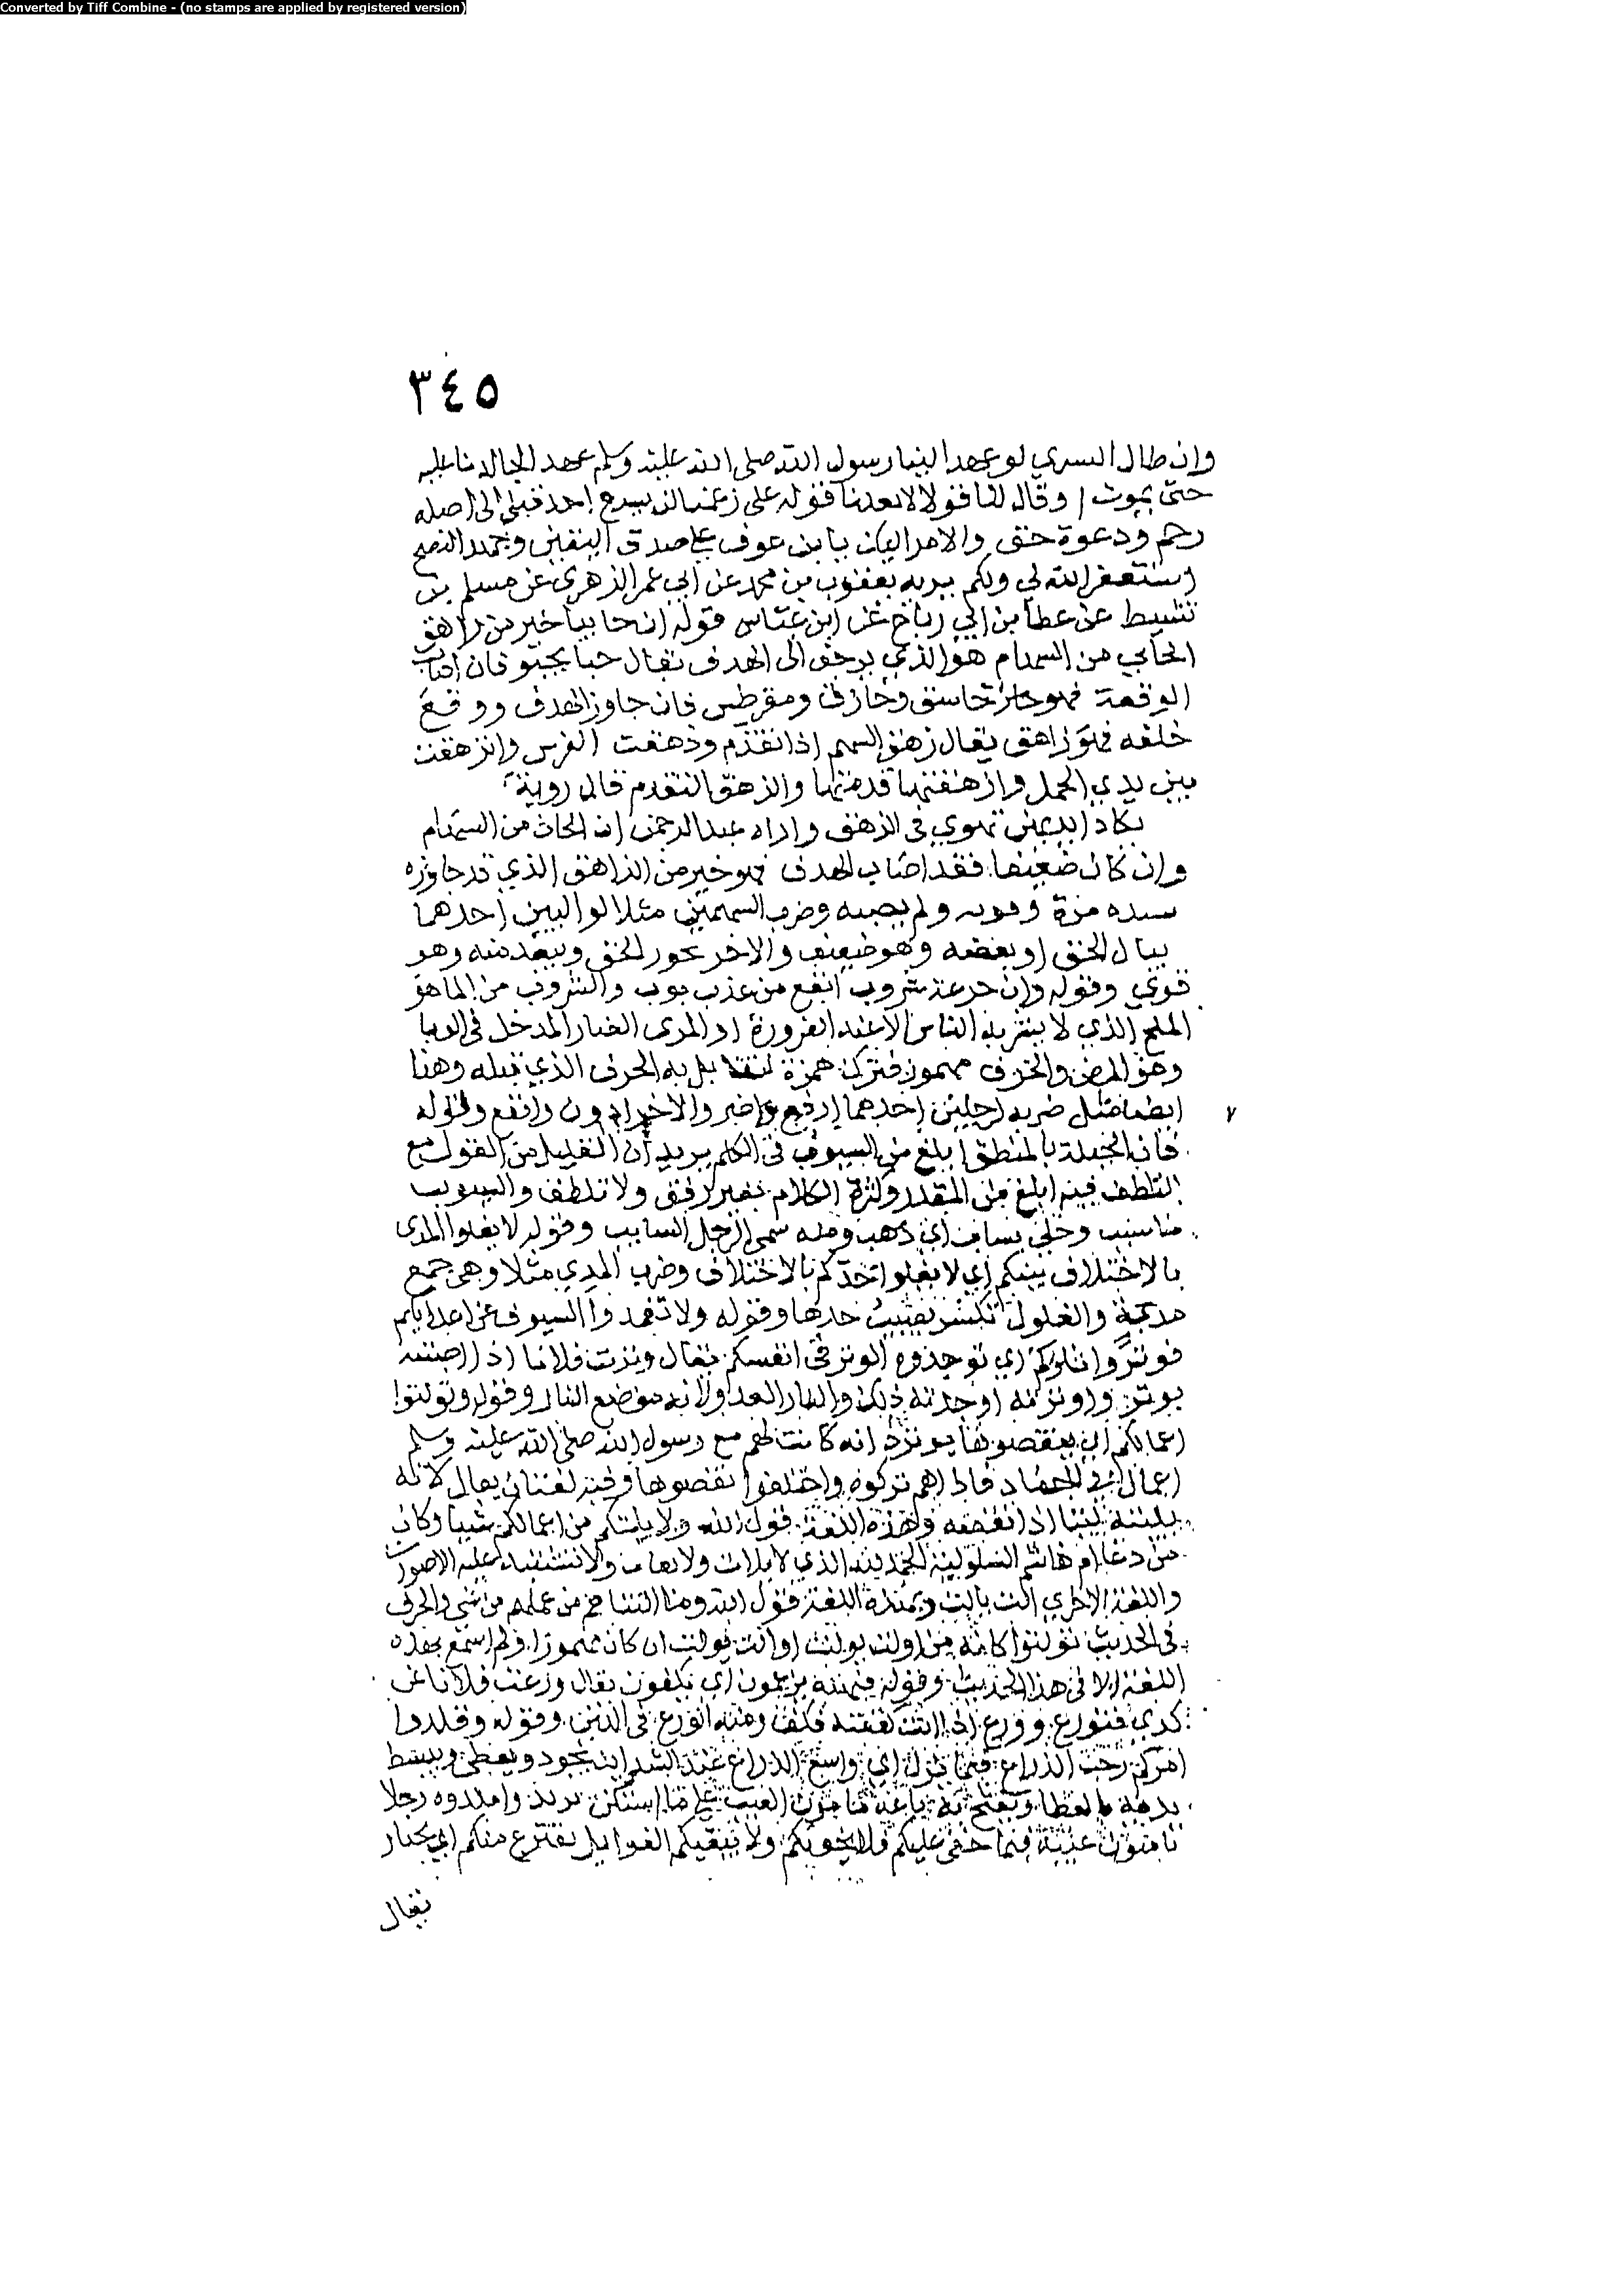 Converted by Tiff Combine - (no stamps are applied by registered version)
٣٤٥
وان طال السري لو عهد الينا رسول الله صلى الله عليه وسلم عهد الجالدنا عليه
حتى يموت او قال لنا قولا لا نعدنا قوله على زعمنا لن يسرع احد قبلي الى اصله
رحم ودعوة حق والامر اليك يا بن عوف على صدق اليقين وجهد النصح
استغفر الله لي ولكم يرويه يعقوب بن محمد عن ابي عمر الزهري عن مسلم بن
نشيط عن عطا بن ابي رباح عن ابن عباس قوله ان حابيا خير من زاهق
الحابي من السهام هو الذي يزحف الى الهدف يقال حبا يحبو فان اصاب
الوقعة فهو خاسق وخازق ومقرطس فان جاوز الهدف ووقع
خلفه فهو زاهق يقال زهق السهم اذا تقدم وزهقت الفرس وانزهقت
بين يدي الخيل وازهقتها قدمتها والزهق التقدم قال روبة
تكاد ايديهن تهوي في الزهق واراد عبد الرحمن ان الحاب من السهام
وان كان ضعيفا فقد اصاب الهدف فهو خير من الزاهق الذي قد جاوزه
بشده مره وقوته ولم يصبه وضرب السهمين مثلا لواليين احدهما
ينال الحق او بعضه وهو ضعيف والاخر يجوز الحق ويبعد منه وهو
قوي وقوله وان جرعة شروب انفع من عذب موب والشروب من الما هو
الملح الذي لا يشربه الناس الا عند الضرورة
وهو المرض والحرف مهموز فترك همزه لتقابل به الحرف الذي قبله وهذا
ايضا مثل ضربه لرجلين احدهما ارفع واضر والاخر ادون وانفع وقوله
٧
فان الحيلة بالمنطق ابلغ من السيوب في الكلم يريد ان القليل من القول مع
التلطف فيه ابلغ من الهذر وكثرة الكلام بغير رفق ولا تلطف والسيوب
ما سيب وخلي فساب اي ذهب ومنه سمى الرجل السايب وقوله لا تفلوا المدى
بالاختلاف بينكم اي لا تفلوا حدكم بالاختلاف وضرب المدي مثلا وهي جمع
مدية والفلول تكسر يصيب حدها وقوله ولا تغمدوا السيوف عن اعدايكم
فوتروا ثاركم اي توجدوه الوتر في انفسكم يقال وترت فلانا اذا اصبته
بوتر واوترته اوجدته ذلك والثار العدو لانه موضع الثار وقوله وتولتوا
اعمالكم اي ينقصوها يريد انه كانت لهم مع رسول الله صلى الله عليه وسلم
اعمال في الجهاد فاذا هم تركوه واختلفوا نقصوها وفيه لغتان يقال لاته
يليته ليتا اذا نقصه ولهذه اللغة قول الله ولا يلتكم من اعمالكم شيا وكان
من دعا ام هاشم السلولية الحمد لله الذي لا يلات ولا يفات ولا تشتبه عليه الاصوات
واللغة الاخرى الت يالت وبهذه اللغة قول الله وما التناهم من عملهم من شي والحرف
في الحديث تولتوا كانه من اولت يولت او الت يولت ان كان مهموزا ولم اسمع بهذه
اللغة الا في هذا الحديث وقوله يزعون اي يكفون يقال وزعت فلانا عن
كذي فتورع وورع اذا انت كففته فكف ومنه الورع في الدين وقوله وقلدوا
امركم رحب الذراع فيما نزل اي واسع الذراع عند الشدايد يجود ويعطي ويبسط
يده بالعطا
مامون غيبه فيما خفى عليكم فلا يخونكم ولا يبغيكم الغوايل يقترع منكم اي يختار
يقال